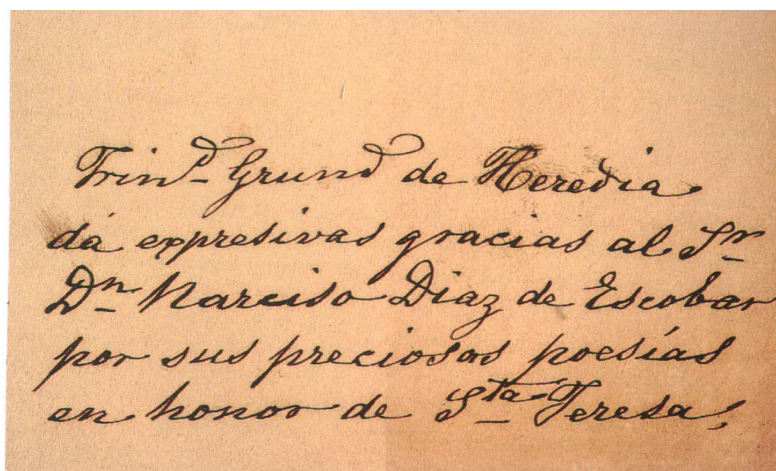 Trinᵈ Grund de Heredia
dá expresivas gracias al Sr
Dn Narciso Diaz de Escobar
por sus preciosas poesías
en honor de Sta Teresa.